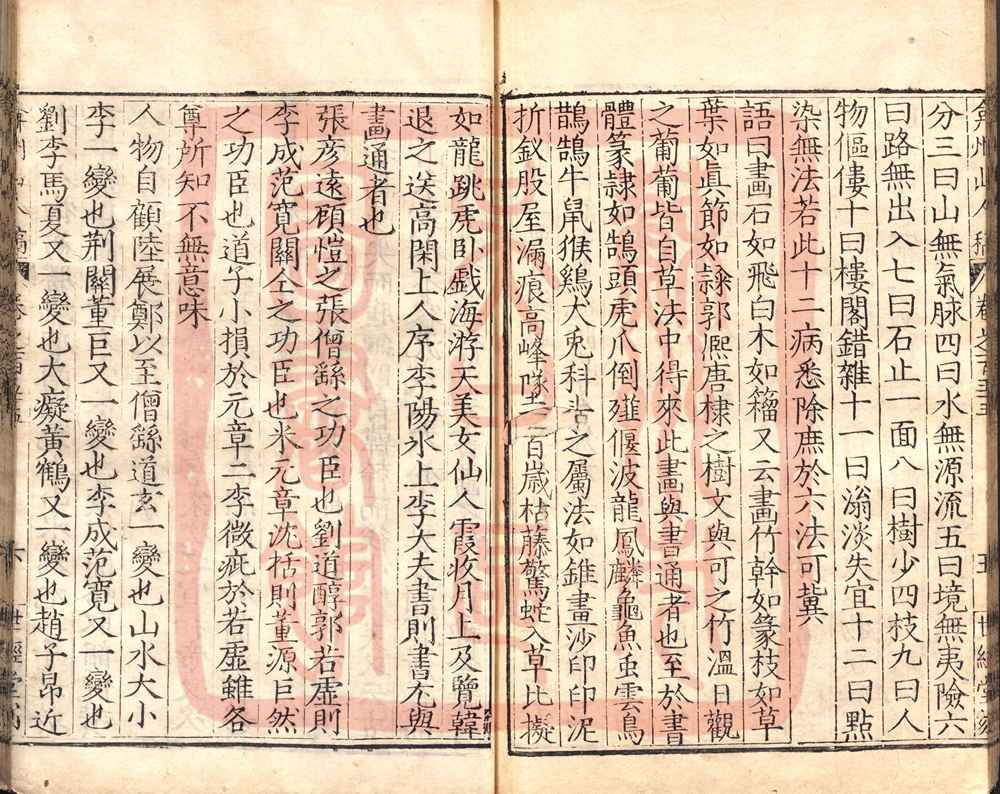 分三曰山無氣脉四曰水無源流五曰境無夷險六
曰路無出入七曰石止一面八曰樹少四枝九曰人
物傴僂十曰樓閣錯雜十一曰滃淡失宜十二曰點
染無法若此十二病悉除庶於六法可冀
語曰畫石如飛白木如籀又云畫竹幹如篆枝如草
葉如眞節如隷郭熈唐棣之樹文與可之竹溫日觀
之葡萄皆自草法中得來此畫與書通者也至於書
體篆隷如鵠頭虎爪倒薤偃波龍鳳麟龜魚虫雲鳥
鵲鵠牛鼠猴鷄犬兎科斗之屬法如錐畫沙印印泥
折釵股屋漏痕高峰墜石百歲枯藤驚蛇入草比擬
如龍跳虎卧戱海游天美女仙人霞收月上及覽韓
退之送高閑上人序李陽氷上李大夫書則書尤與
畫通者也
張彦遠顧愷之張僧繇之功臣也劉道醇郭若虛則
李成范寛關仝之功臣也米元章沈括則董源巨然
之功臣也道子小損於元章二李微疵於若虛雖各
尊所知不無意味
人物自顧陸展鄭以至僧繇道玄一變也山水大小
李一變也荆關董巨又一變也李成范寛又一變也
劉李馬夏又一變也大癡黃鶴又一變也趙子昻近